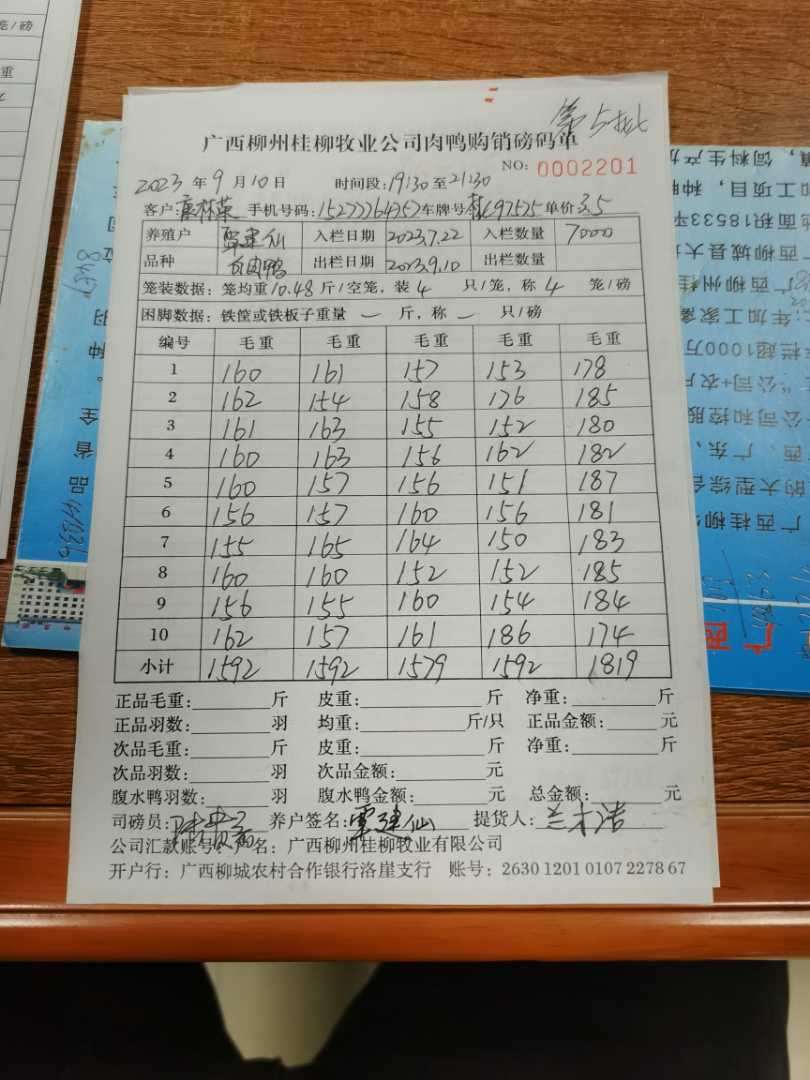 第5批
广西柳州桂柳牧业公司肉鸭购销磅码单
NO: 0002201
2023 年 9 月 10 日 时间段: 19:30 至 21:30
客户: 手机号码: 15277264357 车牌号 97525 单价 3.5
养殖户 覃建仙 入栏日期 2023.7.22 入栏数量 7000
品种 白肉鸭 出栏日期 2023.9.10 出栏数量
笼装数据: 笼均重 10.48 斤/空笼, 装 4 只/笼, 称 4 笼/磅
困脚数据: 铁筐或铁板子重量 — 斤, 称 — 只/磅
编号 毛重 毛重 毛重 毛重 毛重
1 160 161 157 153 178
2 162 154 158 176 185
3 161 163 155 152 180
4 160 163 156 162 182
5 160 157 156 151 187
6 156 157 160 156 181
7 155 165 164 150 183
8 160 160 152 152 185
9 156 155 160 154 184
10 162 157 161 186 174
小计 1592 1592 1579 1592 1819
正品毛重: 斤 皮重: 斤 净重: 斤
正品羽数: 羽 均重: 斤/只 正品金额: 元
次品毛重: 斤 皮重: 斤 净重: 斤
次品羽数: 羽 次品金额: 元
腹水鸭羽数: 羽 腹水鸭金额: 元 总金额: 元
司磅员: 养户签名: 覃建仙 提货人: 兰木浩
公司汇款账号 名: 广西柳州桂柳牧业有限公司
开户行: 广西柳城农村合作银行洛崖支行 账号: 2630 1201 0107 2278 67